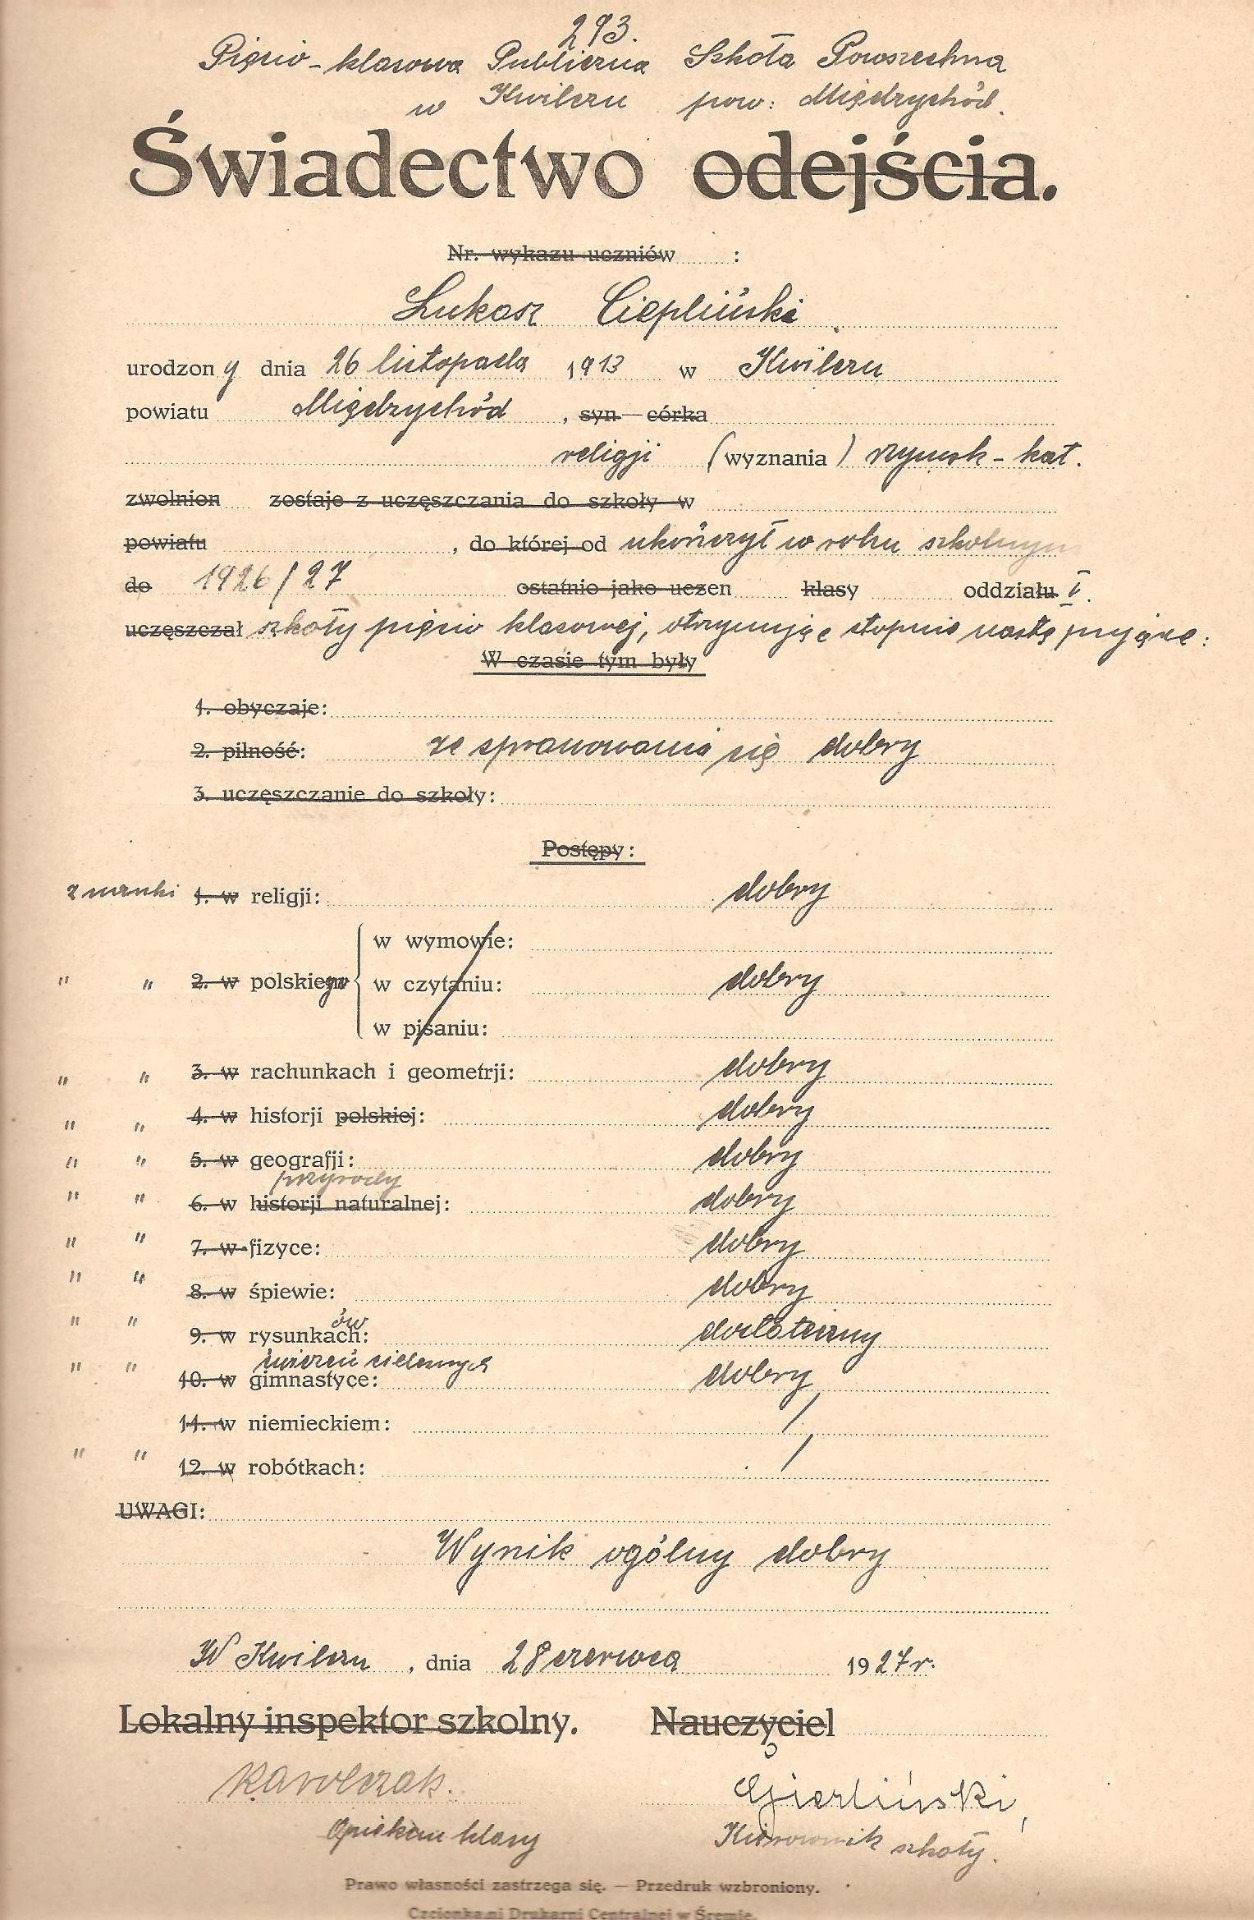 293.
Pięcio-klasowa Publiczna Szkoła Powszechna
w Kwilczu pow: Międzychód.
Świadectwo odejścia.
Nr. wykazu uczniów :
Łukasz Ciepliński
urodzony dnia 26 listopada 1913 w Kwilczu
powiatu Międzychód, syn—córka
religji (wyznania) rzymsk-kat.
zwolnion zostaje z uczęszczania do szkoły w
powiatu , do której od ukończył w roku szkolnym
do 1926/27 ostatnio jako uczen klasy oddziału V.
uczęszczał szkoły pięcio klasowej, otrzymując stopnie następujące:
W czasie tym były
1. obyczaje:
2. pilność: ze sprawowania się dobry
3. uczęszczanie do szkoły:
Postępy:
z nauki 1. w religji: dobry
w wymowie:
" " 2. w polskiego w czytaniu: dobry
w pisaniu:
" " 3. w rachunkach i geometrji: dobry
" " 4. w historji polskiej: dobry
" " 5. w geografji: dobry
przyrody
" " 6. w historji naturalnej: dobry
" " 7. w fizyce: dobry
" " 8. w śpiewie: dobry
ów
" " 9. w rysunkach: dostateczny
ćwiczeń cielesnych
" " 10. w gimnastyce: dobry
11. w niemieckiem: /
" " 12. w robótkach: /
UWAGI:
Wynik ogólny dobry
W Kwilczu, dnia 28 czerwca 1927 r.
Lokalny inspektor szkolny. Nauczyciel
Karolczak. Gierliński,
Opiekun klasy Kierownik szkoły.
Prawo własności zastrzega się. — Przedruk wzbroniony.
Czcionkami Drukarni Centralnej w Śremie.